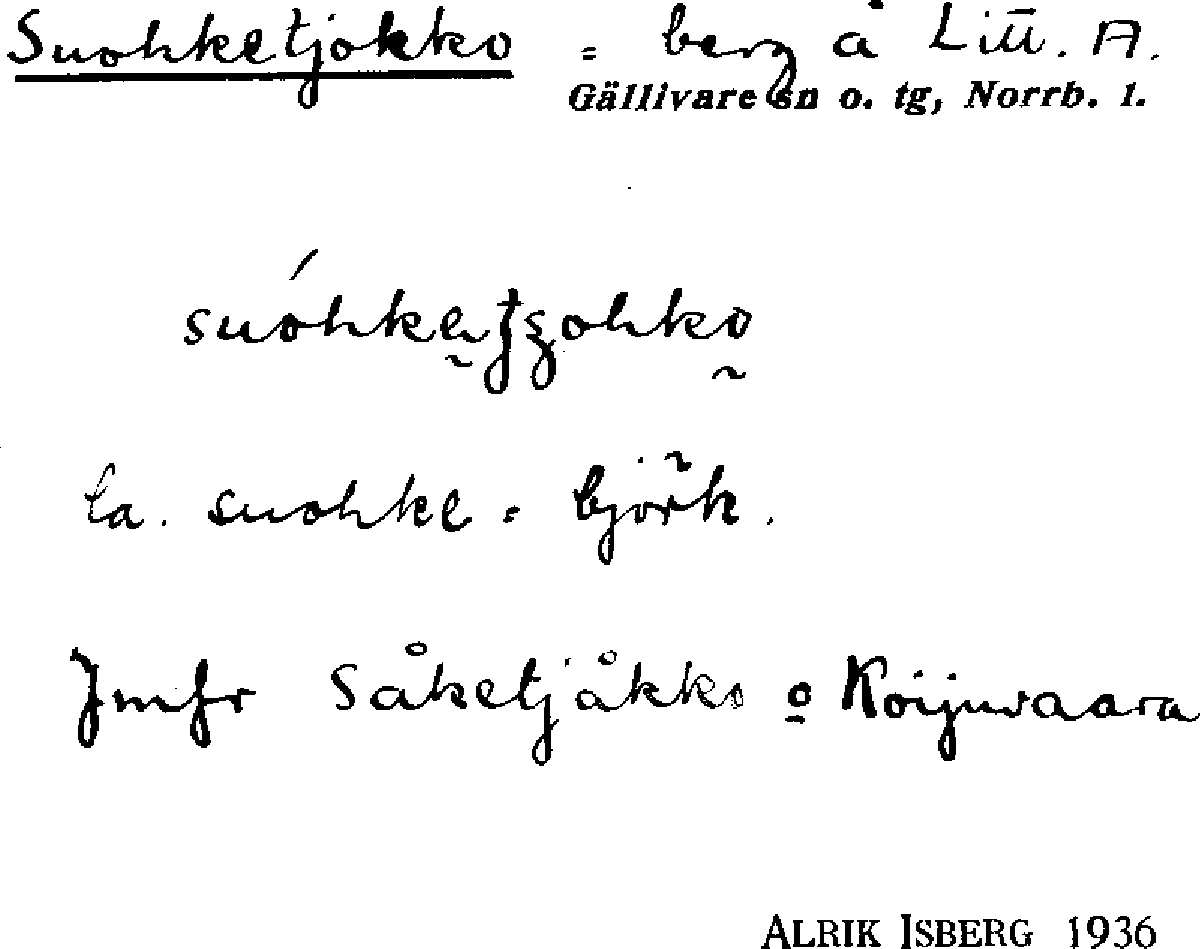 Suohketjokko = berg å Litt. A.
Gällivare sn o. tg, Norrb. l.
suóhketʒohko
la. suohke = björk.
Jmfr Såketjåkko o Koijuvaara
ALRIK ISBERG 1936